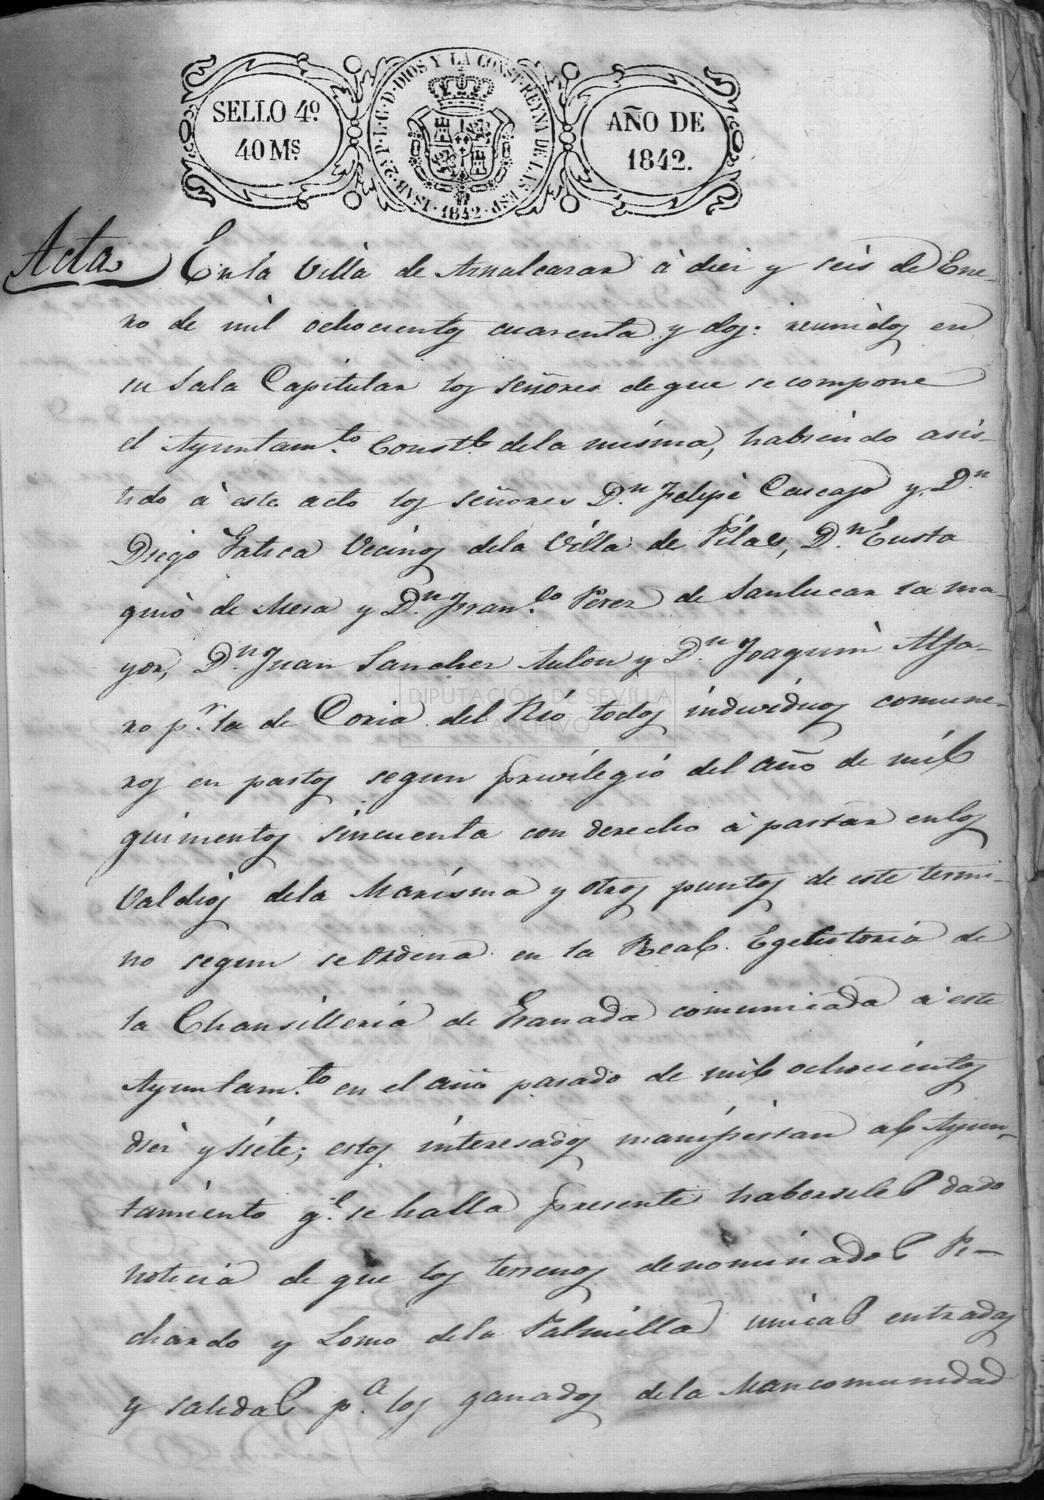 SELLO 4º.
40 Ms.
ISAB. 2ª P. L. G. D. DIOS Y LA CONST. REYNA DE LAS ESP. 1842
AÑO DE
1842.
Acta
En la Villa de Aznalcazar à diez y seis de Ene-
ro de mil ochocientos cuarenta y dos: reunidos en
su Sala Capitular los señores de que se compone
el Ayuntam.to Const.l de la misma, habiendo asis-
tido à este acto los señores D.n Felipe Cascajo y D.n
Diego Gatica Vecinos de la Villa de Pilas, D.n Eusta
quio de Mesa y D.n Fran.co Perez de Sanlucar la ma-
yor, D.n Juan Sanchez Aulon y D.n Joaquin Alfa-
ro p.r la de Coria del Rio todos individuos comune-
ros en pastos segun privilegio del año de mil
quinientos sincuenta con derecho à pastar en los
Valdios de la Marisma y otros puntos de este termi-
no segun se ordena en la Real Egecutoria de
la Chansilleria de Granada comunicada à este
Ayuntam.to en el año pasado de mil ochocientos
diez y siete; estos interesados manifiestan al Ayun-
tamiento q.e se halla presente haberseles dado
noticia de que los terrenos denominados Pi-
chardo y Lomo de la Palmilla unicas entradas
y salidas p.a los ganados de la Mancomunidad
DIPUTACIÓN DE SEVILLA
ARCHIVO